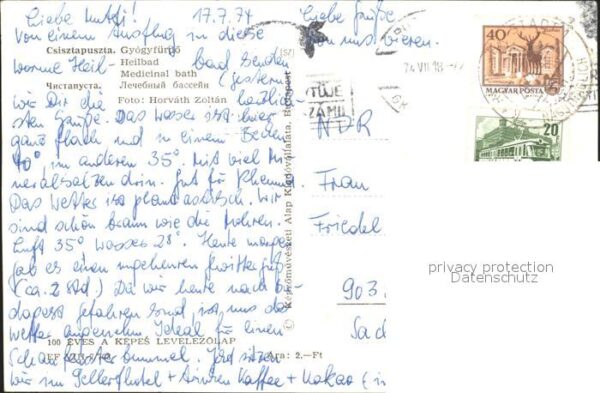 Liebe Mutti! 17.7.74
Von einem Ausflug in diese
Csisztapuszta. Gyógyfürdő
warme Heil-
Heilbad
bad senden
Medicinal bath
(gestern)
Чистапуста. Лечебный бассейн
wir Dir die
Foto: Horváth Zoltán
herzlich-
sten Grüße. Das Wasser ist hier
ganz flach und in einem Becken
40° im anderen 35°. Mit viel Mi-
neralsalzen drin. Gut für Rheuma.
Das Wetter ist phantastisch. Wir
sind schön braun wie die Mohren.
Luft 35° Wasser 28°. Heute morgen
gab es einen ungeheuren Gewitterguß
(ca. 2 Std) Da wir heute nach Bu-
dapest gefahren sind, ist uns das
Wetter angenehm. Ideal für einen
100 ÉVES A KÉPES LEVELEZŐLAP
Schaufensterbummel. Jetzt sitzen
Ára: 2.–Ft
wir im Gellerthotel + trinken Kaffee + Kakao
Liebe Grüße
von uns vieren.
[SZ]
© Képzőművészeti Alap Kiadóvállalata, Budapest
74 VII 18
40f
MAGYAR POSTA
20
NDR
Frau
Friedel
903
privacy protection
Datenschutz